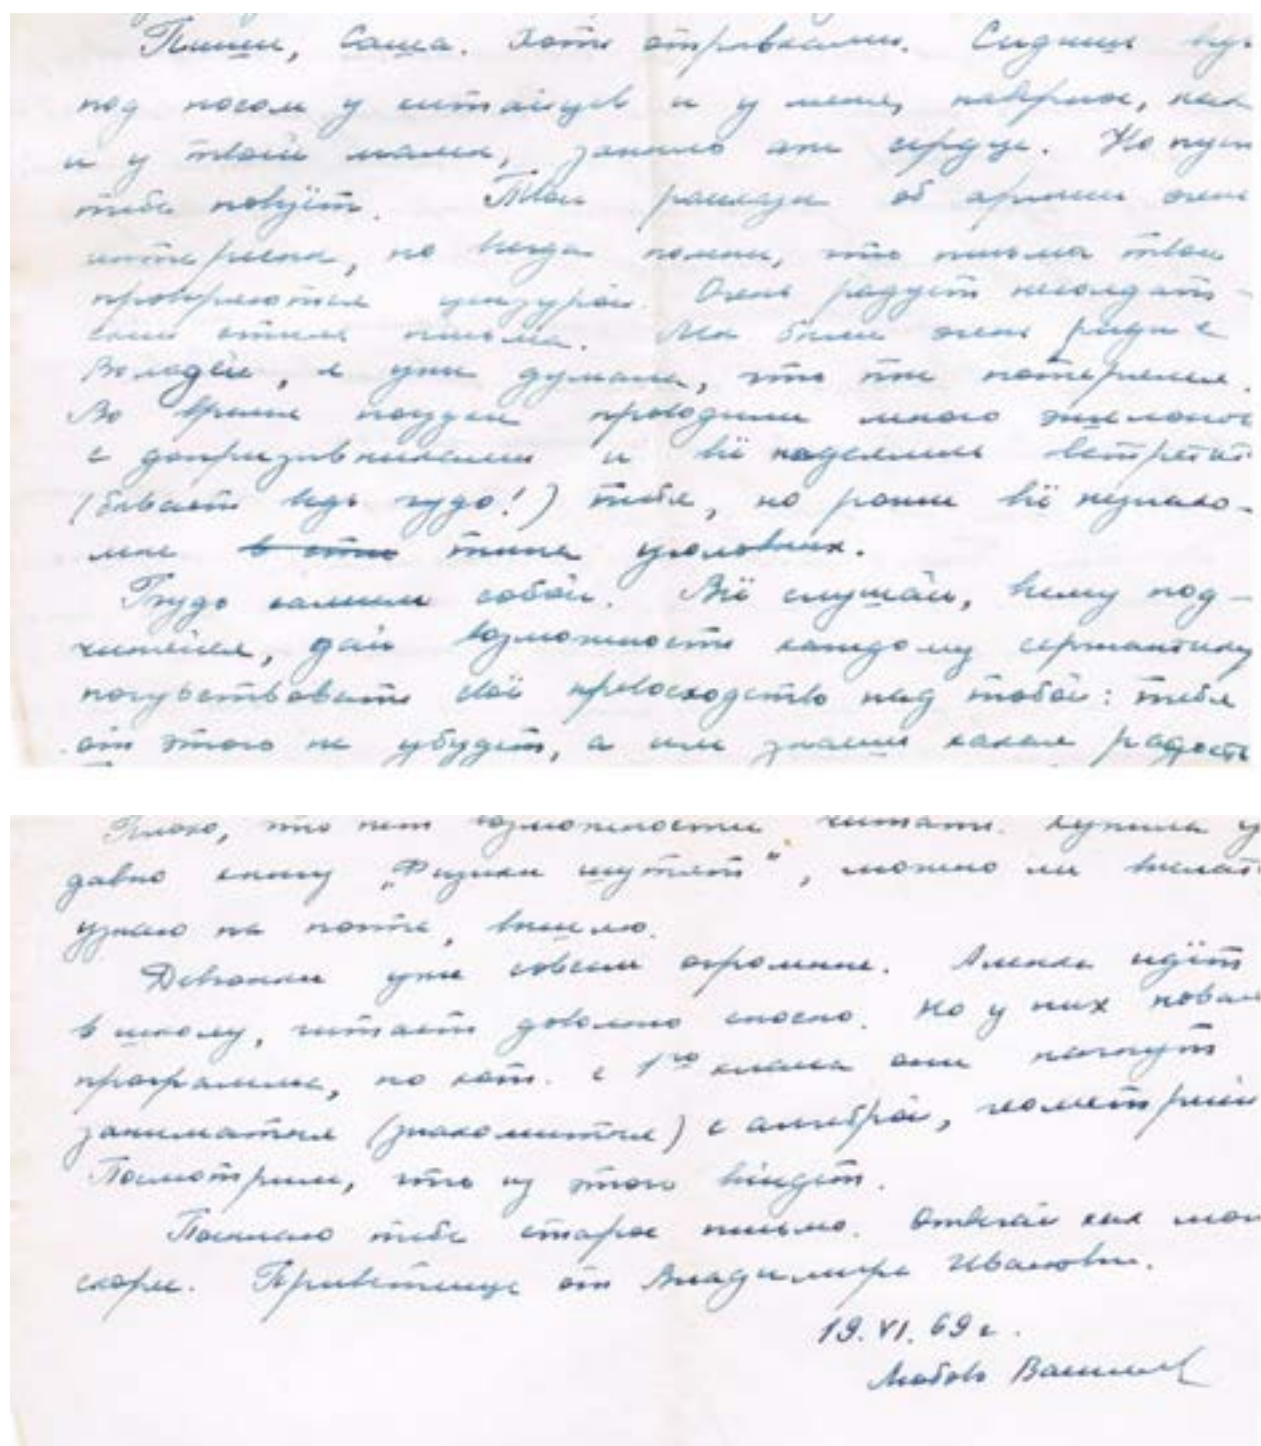 Пиши, Саша. Хоть отрывками. Сидишь
под носом у китайцев и у меня, наверное, как
и у твоей мамы, заныло аж сердце. Но пусть
тебе повезёт. Твои рассказы об армии очень
интересны, но всегда помни, что письма твои
проверяются цензурой. Очень радует несолдат-
ский стиль письма. Мы были очень рады с
Володей, я уже думала, что ты потерялся.
Во время поездки проводили много эшелонов
с допризывниками и всё надеялись встретить
(бывает ведь чудо!) тебя, но рожи всё незнако-
мые типа уголовных.
Будь самим собой. Всё слушай, всему под-
чиняйся, дай возможность каждому сержантику
почувствовать своё превосходство над тобой: тебя
от этого не убудет, а им знаешь какая радость
Плохо, что нет возможности читать. Купила
давно книгу „Физики шутят“, можно ли выслать
узнаю на почте, вышлю.
Девчонки уже совсем огромные. Аленка идёт
в школу, читает довольно сносно. Но у них новая
программа, по кот. с 1го класса они начнут
заниматься (знакомиться) с алгеброй, геометрией
Посмотрим, что из этого выйдет.
Посылаю тебе старое письмо. Отвечай как мож
скорее. Приветище от Владимира Ивановича.
19. VI. 69 г.
Любовь Васильев